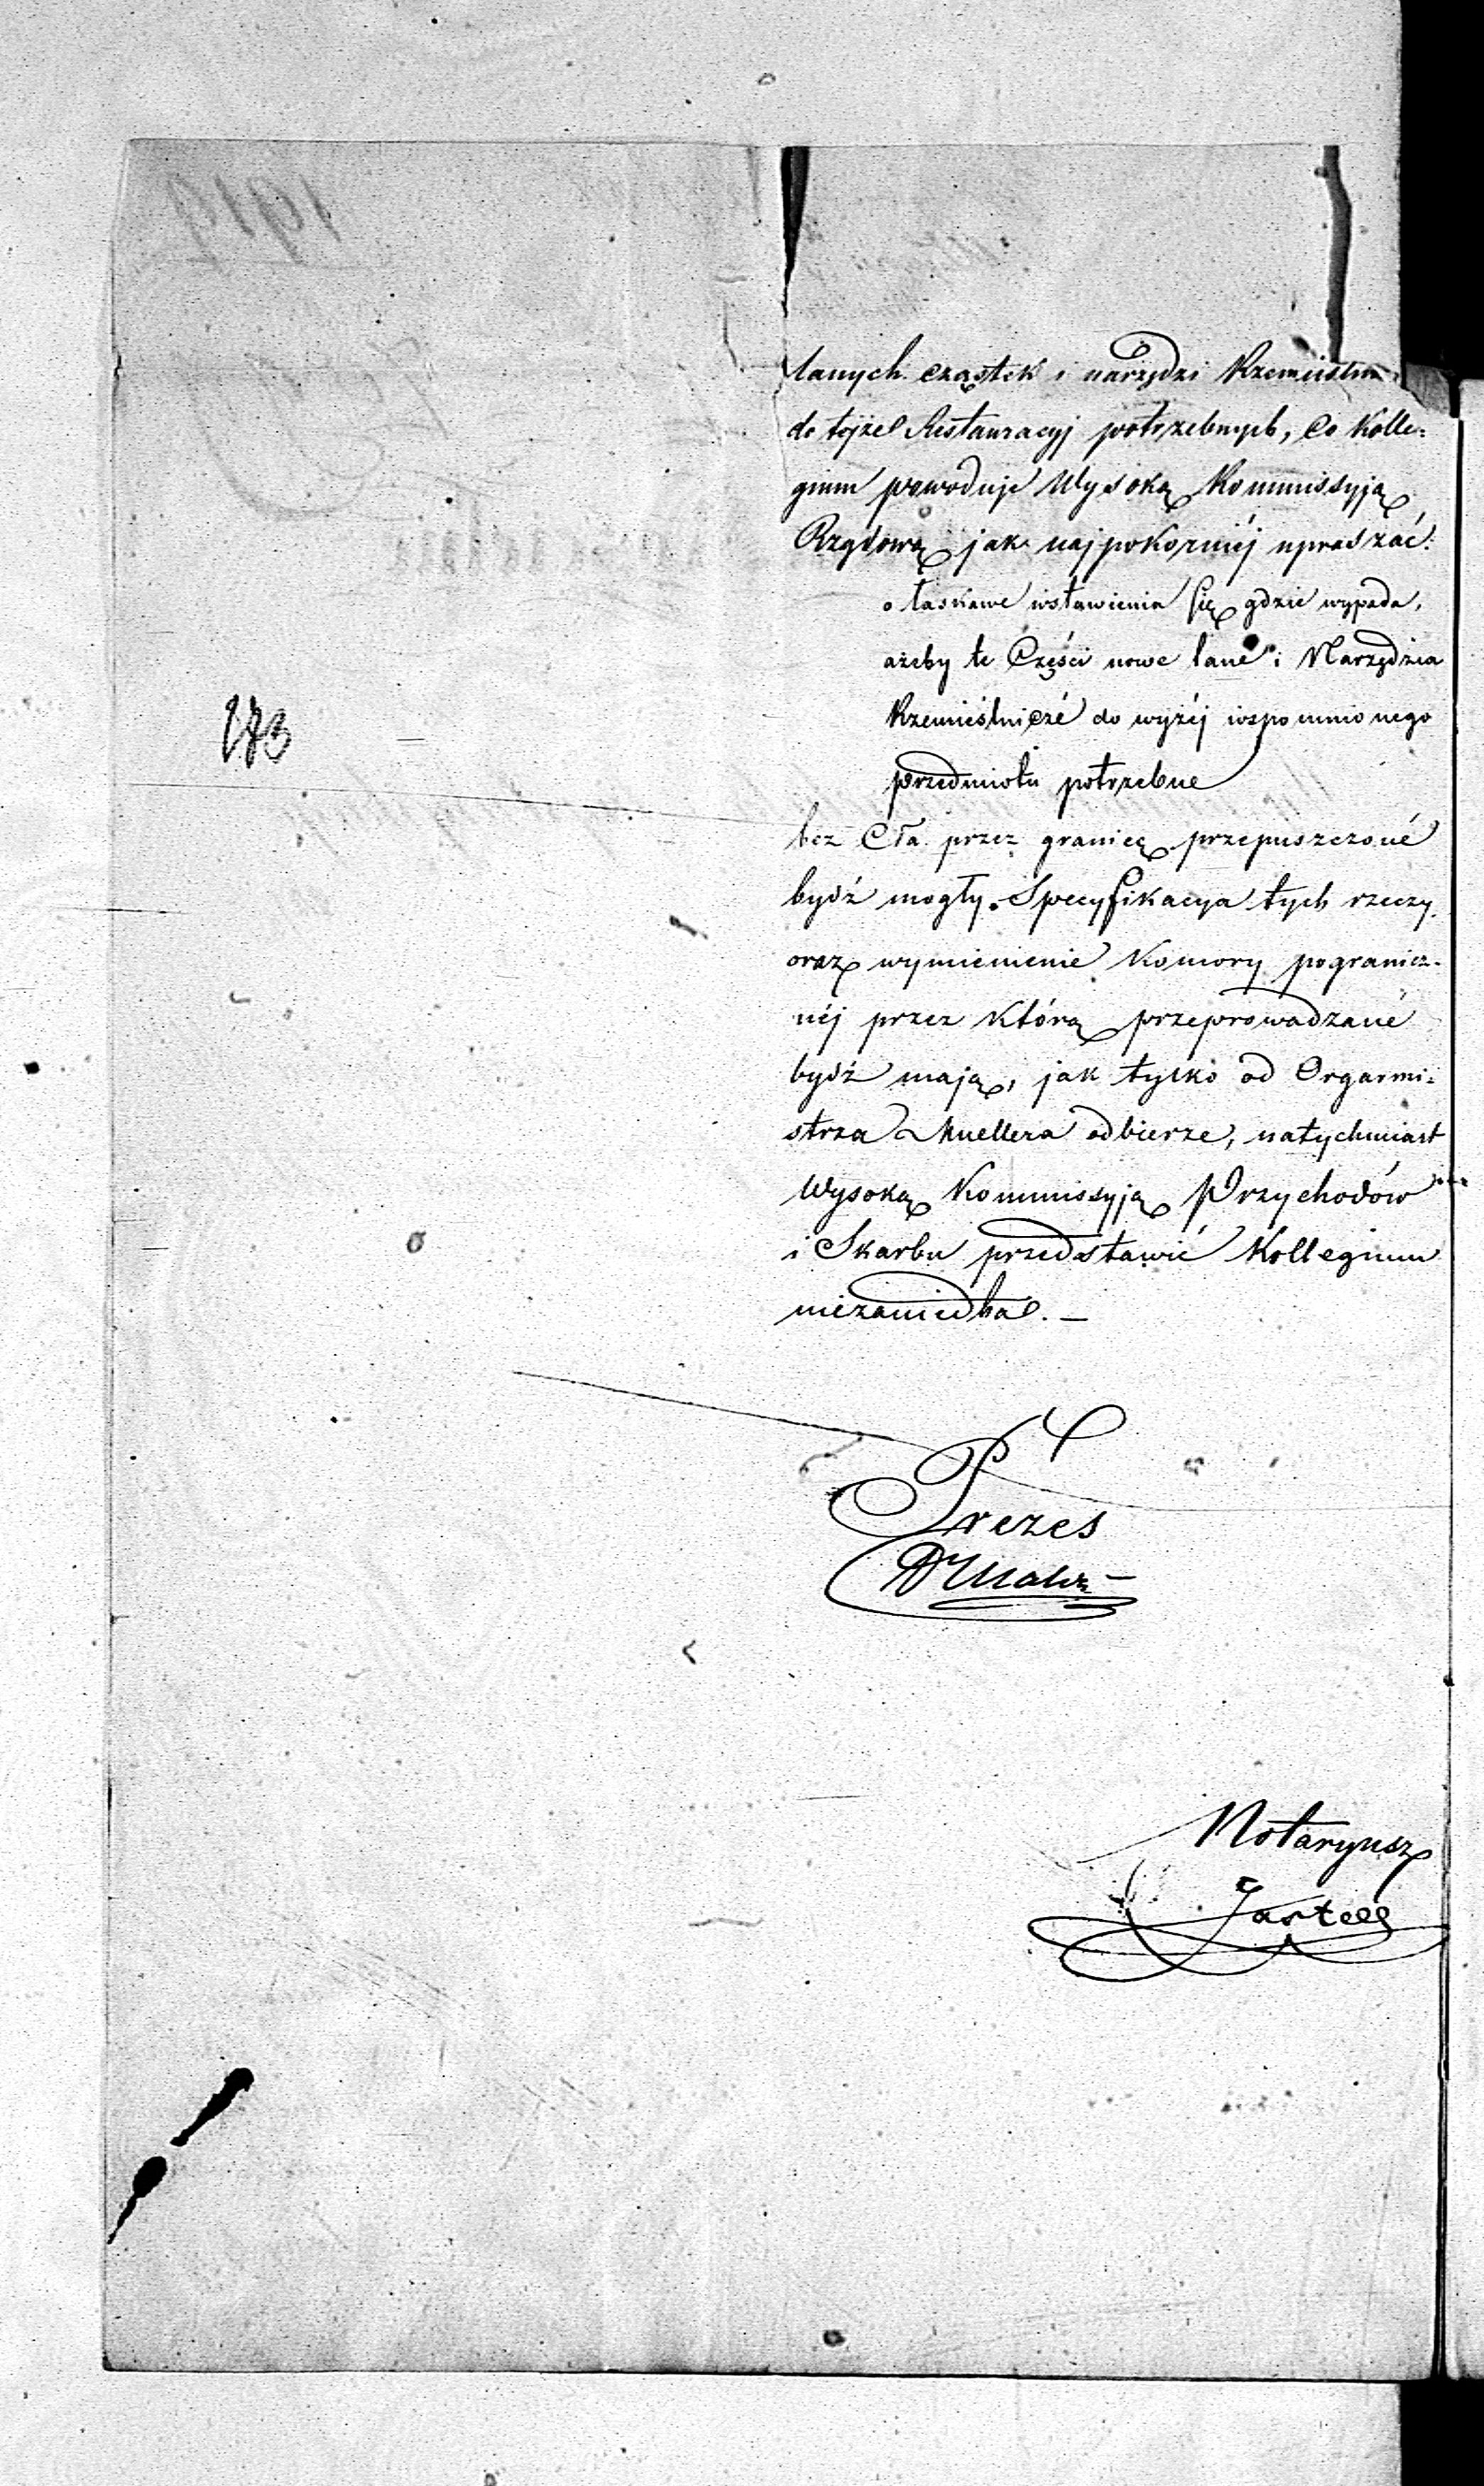 lanych cząstek i narzędzi Rzemieśln
do tejże Restauracyj potrzebnych, co Kolle=
gium powoduje Wysoką Kommissyją
Rządową jak najpokorniéj upraszać:
o łaskawe wstawienia się gdzie wypada,
ażeby te Części nowe lane i Narzędzia
Rzemieślniczé do wyżéj wspomnionego
przedmiotu potrzebne
bez Cła przez granicę przepuszczoné
bydź mogły. Specyfikacya tych rzeczy
oraz wymienienie Komory pogranicz=
néj przez którą przeprowadzané
bydź mają, jak tylko od Orgarmi=
strza Muellera odbierze, natychmiast
Wysoką Kommissyją Przychodów
i Skarbu przedstawić Kollegium
niezaniedba. —
Prezes
Notaryusz